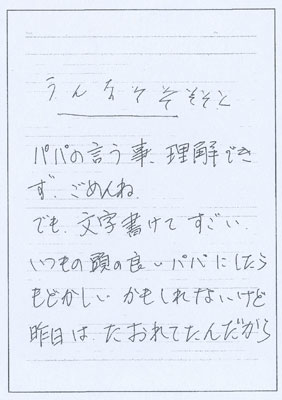 うんなそそそそと
パパの言う事、理解でき
ず、ごめんね。
でも、文字書けてすごい。
いつもの頭の良いパパにしたら
もどかしいかもしれないけど
昨日は、たおれてたんだから